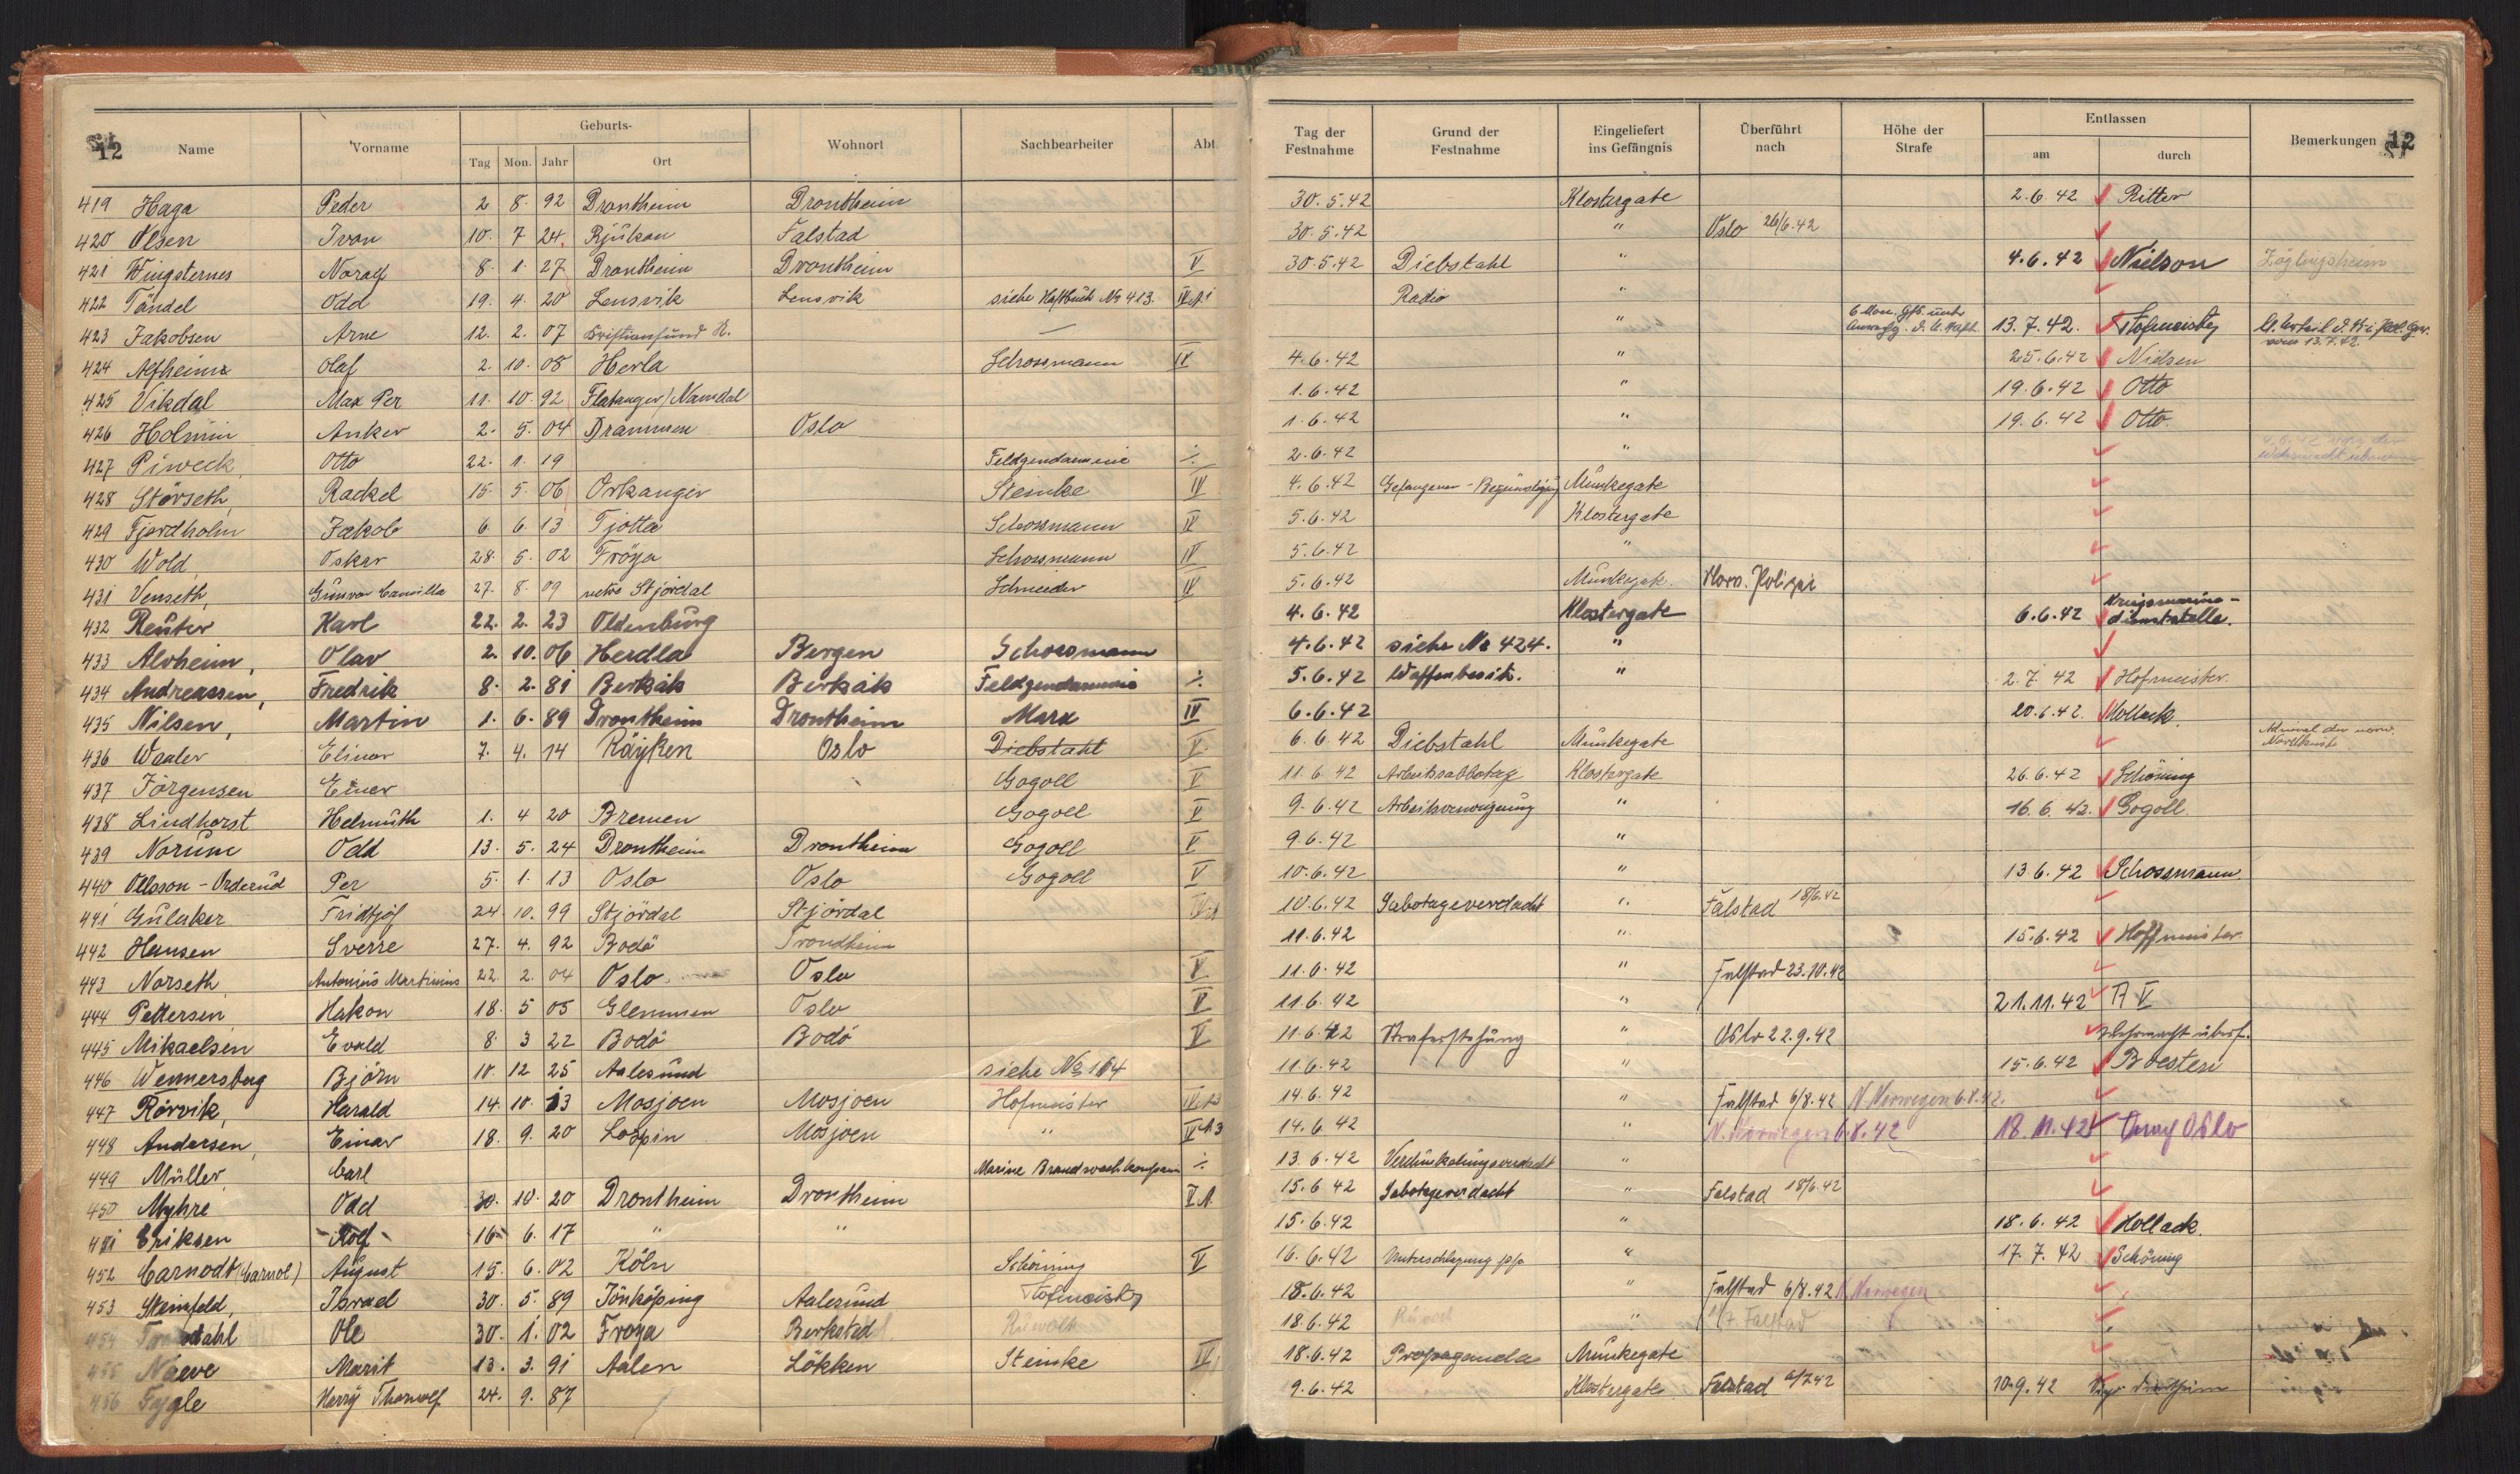 12 Name Vorname Geburts- Wohnort Sachbearbeiter Abt. Tag der Festnahme Grund der Festnahme Eingeliefert ins Gefängnis Überführt nach Höhe der Strafe Entlassen Bemerkungen 12
Tag Mon. Jahr Ort am durch
419 Haga Peder 2 8. 92 Drontheim Drontheim 30.5.42 Klostergate 2.6.42 Ritter
420 Olsen Ivan 10. 7 24 Rjukan Falstad 30.5.42 " Oslo 26/6.42
421 Wingsternes Noralf 8. 1. 27 Drontheim Drontheim V 30.5.42 Diebstahl " 4.6.42 Nielson Zöglingsheim
422 Tändel Odd 19. 4. 20 Lensvik Lensvik siehe Haftbuch No 413. Radio "
423 Jakobsen Arne 12. 2. 07 Kristiansund N. — " 6 Mon. Gfs. unter 13.7.42. Hofmeister
vom 13.7.42.
424 Alfheim Olaf 2. 10. 08 Herla Schossmann IV 4.6.42 " 25.6.42 Nielsen
425 Vikdal Max Per 11. 10. 92 Flatanger/Namdal 1.6.42 " 19.6.42 Otto
426 Holmin Anker 2. 5. 04 Drammen Oslo 1.6.42 " 19.6.42 Otto.
427 Piweck, Otto 22. 1. 19 Feldgendarmerie ÷ 2.6.42 "
428 Störseth, Rackel 15. 5. 06 Orkanger Steinke IV 4.6.42 Gefangenen-Begünstigung Munkegate
429 Fjordholm Jakob 6. 6. 13 Tjotta Schossmann IV 5.6.42 Klostergate
430 Wold, Oskar 28. 5. 02 Fröya Schossmann IV 5.6.42 "
431 Venseth, Gunvor Camilla 27. 8. 09 nedre Stjördal Schneider IV 5.6.42 Munkegate. Norw. Polizei
432 Reuter Karl 22. 2. 23 Oldenburg 4.6.42 Klostergate 6.6.42 Kriegsmarine-
dienststelle.
433 Alvheim, Olav 2. 10. 06 Herdla Bergen Schossmann 4.6.42 siehe No 424. "
434 Andreassen, Fredrik 8. 2. 81 Berkåk Berkåk Feldgendarmerie ÷ 5.6.42 Waffenbesitz. " 2.7.42 Hofmeister.
435 Nilsen, Martin 1. 6. 89 Drontheim Drontheim Marx IV 6.6.42 20.6.42. Hollack.
436 Waaler Elinor 7. 4. 14 Röyken Oslo Diebstahl V 6.6.42 Diebstahl Munkegate Admiral der norw. Nordküste
437 Jörgensen Einer Gogoll V 11.6.42 Arbeitssabbotage Klostergate 26.6.42 Schöning
438 Lindhorst Helmuth 1. 4 20 Bremen Gogoll V 9.6.42 Arbeitsverweigerung " 16.6.42. Gogoll.
439 Norum Odd 13. 5. 24 Drontheim Drontheim Gogoll V 9.6.42 "
440 Ollsson-Orderud Per 5. 1. 13 Oslo Oslo Gogoll V 10.6.42 " 13.6.42 Schossmann
441 Gulaker Fridtjof 24. 10. 99 Stjördal Stjördal 10.6.42 Sabotageverdacht " Falstad 18/6.42
442 Hansen Sverre 27. 4. 92 Bodö Trondheim 11.6.42 " 15.6.42 Hoffmeister.
443 Norseth, Antonius Martinius 22. 2. 04 Oslo Oslo V 11.6.42 " Falstad 23.10.42
444 Pettersen Hakon 18. 5 05 Glemmen Oslo V 11.6.42 " 21.11.42 A V
445 Mikaelsen Evald 8. 3 22 Bodö Bodö V 11.6.42 Straferstehung " Oslo 22.9.42 Wehrmacht überf.
446 Wennersberg Björn 10. 12 25 Aalesund siehe No 164 11.6.42 " 15.6.42 Boesten
447 Rörvik, Harald 14. 10. 13 Mosjoen Mosjoen Hofmeister 14.6.42 " Falstad 6/8.42 N. Norwegen 6.8.42.
448 Andersen, Einar 18. 9. 20 Loopin Mosjoen " IV A3 14.6.42 " N. Norwegen 6.8.42 18.11.42 Oslo
449 Müller, Carl Marine Brandwachkompan ÷ 13.6.42 Verdunkelungsverdacht "
450 Myhre Odd 30. 10. 20 Drontheim Drontheim 15.6.42 Sabotageverdacht " Falstad 18/6.42
451 Eriksen Rolf 16. 6. 17 " " 15.6.42 " 18.6.42 Hollack.
452 Carnodt (Carnol) August 15. 6. 02 Köln Schöning V 16.6.42 Unterschlagung " 17.7.42 Schöning
453 Steinfeld, Israel 30. 5. 89 Jönköping Aalesund Hofmeister 18.6.42 " Falstad 6/8.42 N. Norwegen
454 Ole 30. 1. 02 Froya 18.6.42 " Falstad
455 Naeve Marit 13. 3. 91 Aalen Lökken Steinke IV 18.6.42 Propaganda Munkegate
456 Fygle Harry Thorwolf 24. 9. 87 9.6.42 Klostergate. Falstad 10.9.42